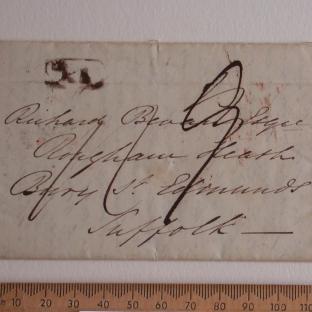 Richard Bevan Esqre
Rougham Heath
Bury St. Edmunds
Suffolk
10 20 30 40 50 60 70 80 90 100 110